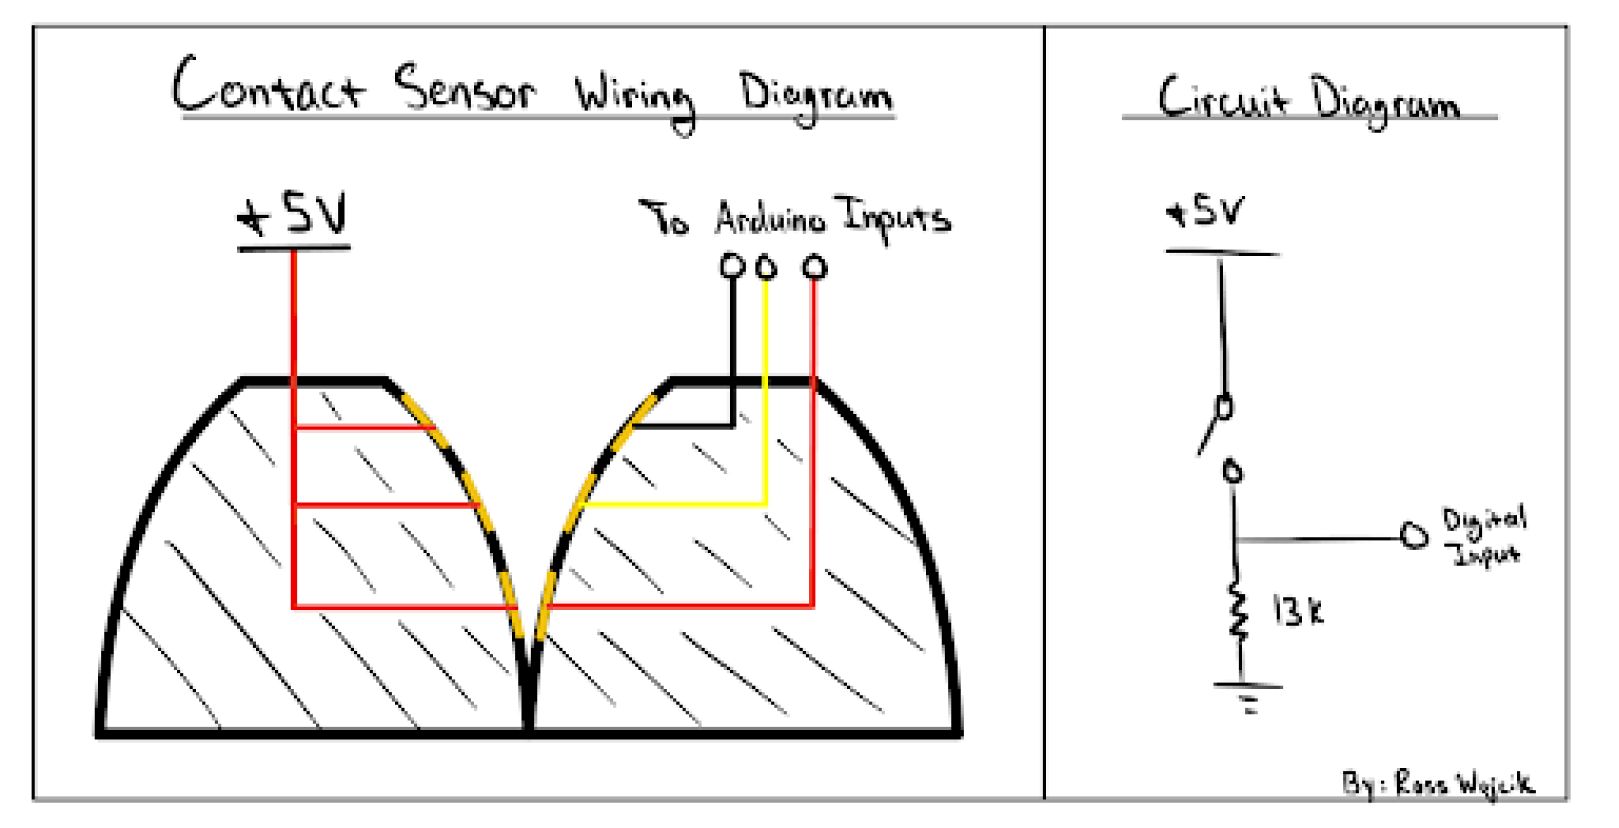 Contact Sensor Wiring Diagram
+5V
To Arduino Inputs
Circuit Diagram
+5V
Digital
Input
13k
By: Ross Wojcik